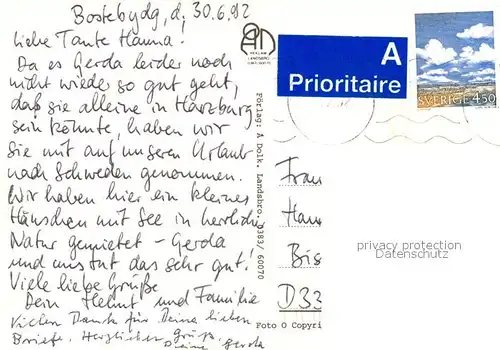 Bostebydg, d. 30.6.92
Liebe Tante Hanna!
Da es Gerda leider noch
nicht wieder so gut geht,
daß sie alleine in Harzburg
sein könnte, haben wir
sie mit auf unseren Urlaub
nach Schweden genommen.
Wir haben hier ein kleines
Häuschen mit See in herrlicher
Natur gemietet - Gerda
und uns tut das sehr gut!
Viele liebe Grüße
Dein Helmut und Familie
Vielen Dank für Deine lieben
Briefe. Herzlichen Gruß,
Deine Gerda
Förlag: A Dolk. Landsbro. 0383/ 60070
A
Prioritaire
SVERIGE 450
Frau
Han
Bis
D33
privacy protection
Datenschutz
Foto O Copyri